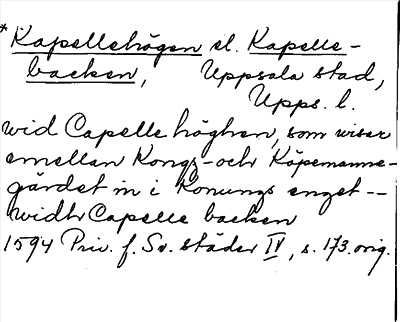 *Kapellehögen el. Kapelle-
backen, Uppsala stad,
Upps. l.
wid Capelle höghen, som wisar
emellan Kongz- och Köpemanne-
gärdet in i Konungs enget --
widh Capelle backen
1594 Priv. f. Sv. städer IV, s. 173. orig.